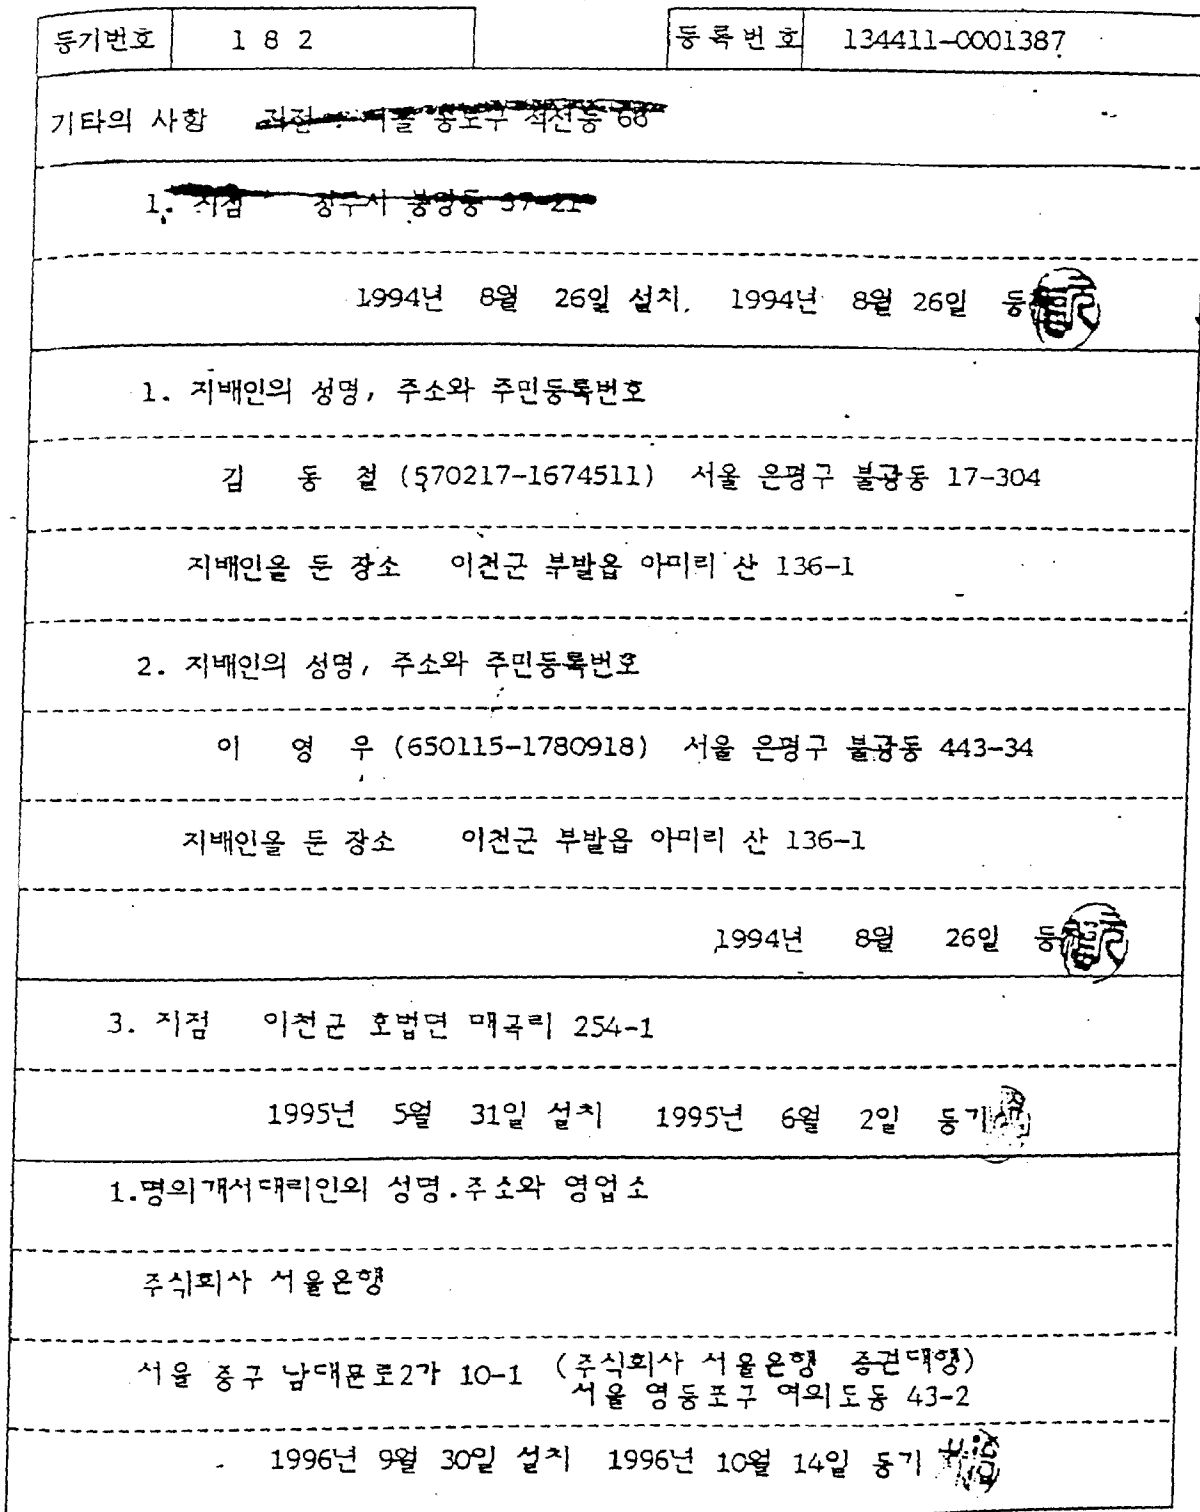 등기번호 1 8 2 등록번호 134411-0001387
기타의 사항
1. 지점 37-21
1994년 8월 26일 설치. 1994년 8월 26일 등
1. 지배인의 성명, 주소와 주민등록번호
김 동 철 (570217-1674511) 서울 은평구 불광동 17-304
지배인을 둔 장소 이천군 부발읍 아미리 산 136-1
2. 지배인의 성명, 주소와 주민등록번호
이 영 우 (650115-1780918) 서울 은평구 불광동 443-34
지배인을 둔 장소 이천군 부발읍 아미리 산 136-1
1994년 8월 26일 등
3. 지점 이천군 호법면 매곡리 254-1
1995년 5월 31일 설치 1995년 6월 2일 등기
1.명의개서대리인의 성명.주소와 영업소
주식회사 서울은행
서울 중구 남대문로2가 10-1 (주식회사 서울은행 증권대행)
서울 영등포구 여의도동 43-2
1996년 9월 30일 설치 1996년 10월 14일 등기